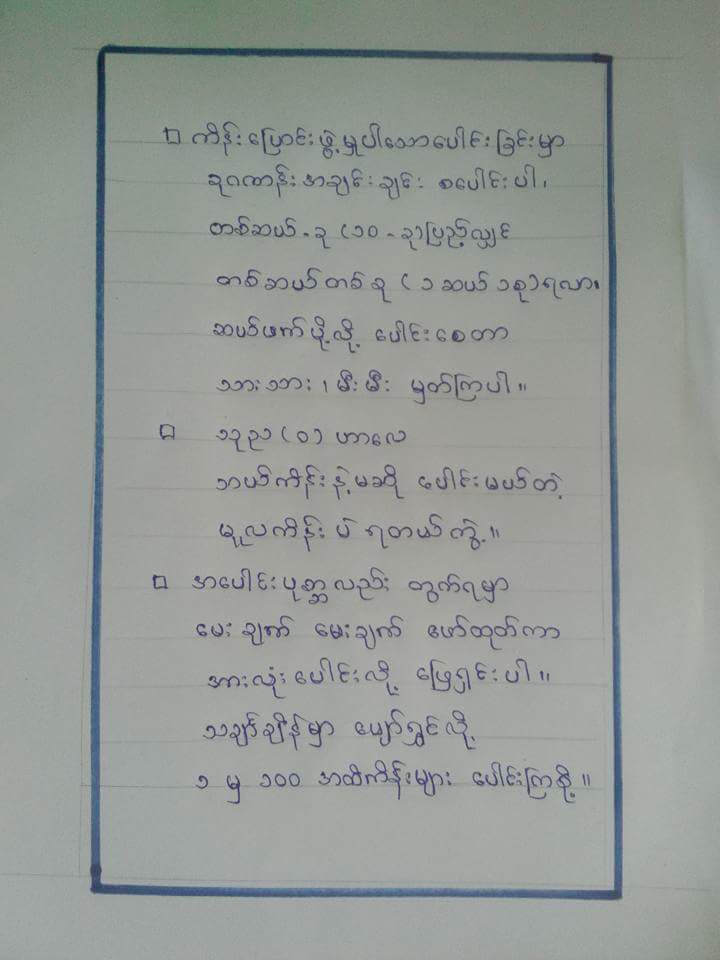 □ ကိန်းပြောင်းဖွဲ့မှုပါသောပေါင်းခြင်းမှာ
ခုဂဏန်းအချင်းချင်း စပေါင်းပါ၊
တစ်ဆယ်-ခု (၁၀-ခု)ပြည့်လျှင်
တစ်ဆယ်တစ်ခု (၁ဆယ်၁ခု)ရလာ၊
ဆယ်ဖက်ပို့လို့ ပေါင်းစေတာ
သားသား၊မီးမီး မှတ်ကြပါ။
□ သုည(၀)ဟာလေ
ဘယ်ကိန်းနဲ့မဆို ပေါင်းမယ်တဲ့
မူလကိန်းပဲ ရတယ်ကွဲ့။
□ အပေါင်းပုစ္ဆာလည်း တွက်ရမှာ
မေးချက် မေးချက် ဖော်ထုတ်ကာ
အားလုံးပေါင်းလို့ ဖြေရှင်းပါ။
သင်္ချာချိန်မှာ ပျော်ရွှင်လို့
၁ မှ ၁၀၀ အထိကိန်းများ ပေါင်းကြစို့။